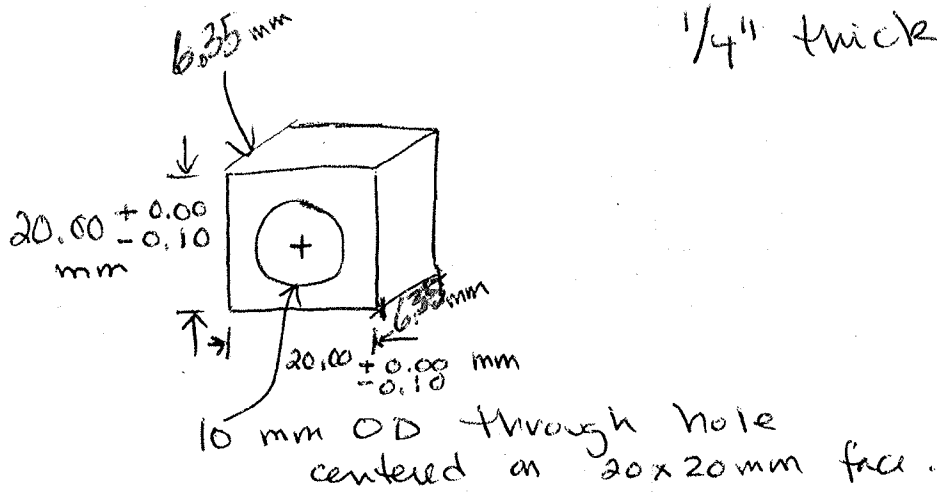 6.35 mm
1/4" thick
20.00 + 0.00
- 0.10
mm
6.35 mm
20.00 + 0.00 mm
- 0.10
10 mm OD through hole
centered on 20x20mm face.